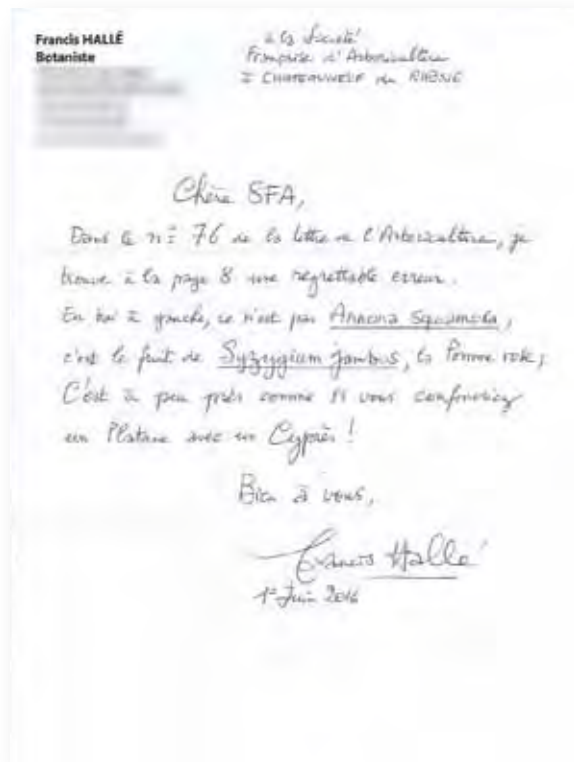 Francis HALLÉ
Botaniste
à la Société
Française d'Arboriculture
à CHATEAUNEUF du RHÔNE
Chère SFA,
Dans le n° 76 de la lettre de l'Arboriculture, je
trouve à la page 8 une regrettable erreur.
En bas à gauche, ce n'est pas Annona squamosa,
c'est le fruit de Syzygium jambos, la Pomme rose;
C'est à peu près comme si vous confondiez
un Platane avec un Cyprès !
Bien à vous,
Francis Hallé
1er Juin 2016